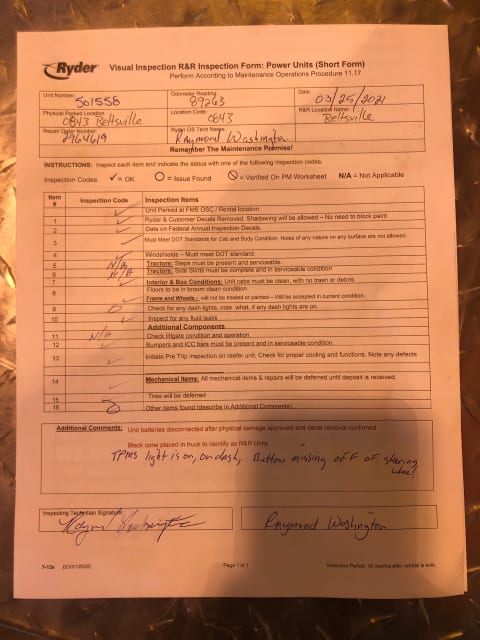 Ryder Visual Inspection R&R Inspection Form: Power Units (Short Form)
Perform According to Maintenance Operations Procedure 11.17
Unit Number: 501558
Odometer Reading: 89263
Date: 03/25/2021
Physical Parked Location: 0843 Beltsville
Location Code: 0843
R&R Location Name: Beltsville
Repair Order Number: 2964619
Ryder OS Tech Name: Raymond Washington
Remember The Maintenance Promise!
INSTRUCTIONS: Inspect each item and indicate the status with one of the following inspection codes.
Inspection Codes ✓= OK O = Issue Found ⃠ = Verified On PM Worksheet N/A = Not Applicable
Item # Inspection Code Inspection Items
✓ Unit Parked at FMS OSC / Rental location
1 ✓ Ryder & Customer Decals Removed. Shadowing will be allowed – No need to block paint
2 ✓ Date on Federal Annual Inspection Decals.
3 ✓ Must Meet DOT Standards for Cab and Body Condition. Holes of any nature on any surface are not allowed.
4 ✓ Windshields – Must meet DOT standard.
5 N/A Tractors: Steps must be present and serviceable.
6 N/A Tractors: Side Skirts must be complete and in serviceable condition
7 ✓ Interior & Box Conditions: Unit cabs must be clean, with no trash or debris
Floors to be in broom clean condition
8 ✓ Frame and Wheels - will not be treated or painted – Will be accepted in current condition.
9 O Check for any dash lights, note what, if any dash lights are on.
10 ✓ Inspect for any fluid leaks
Additional Components
11 N/A Check liftgate condition and operation.
12 ✓ Bumpers and ICC bars must be present and in serviceable condition.
13 ✓ Initiate Pre Trip inspection on reefer unit. Check for proper cooling and functions. Note any defects
14 ✓ Mechanical Items: All mechanical items & repairs will be deferred until deposit is received.
15 ✓ Tires will be deferred
16 O Other items found (describe in Additional Comments)
Additional Comments: Unit batteries disconnected after physical damage approved and decal removal confirmed
Black cone placed in truck to identify as R&R Units
TPMS light is on, on dash, Button missing off of stering
wheel
Inspecting Technician Signature:
Raymond Washington
7-13s (03/31/2020)
Page 1 of 1
Retention Period: 18 months after vehicle is sold.